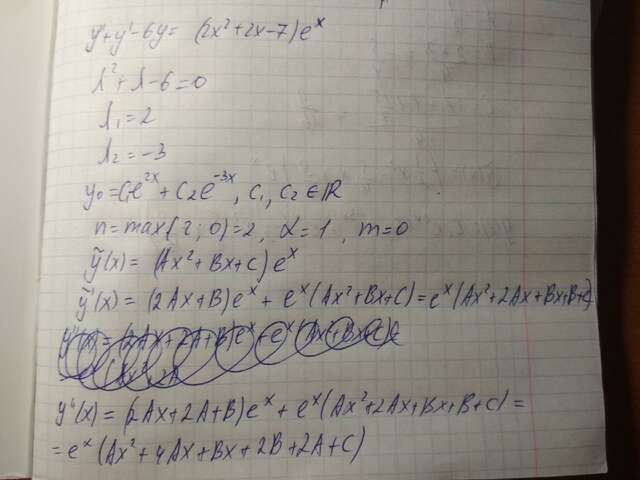 y''+y'-6y= (2x²+2x-7)eˣ
λ²+λ-6=0
λ₁=2
λ₂=-3
y₀=C₁e²ˣ+C₂e⁻³ˣ, C₁, C₂∈ℝ
n=max(2;0)=2, α=1, m=0
ỹ(x)= (Ax²+Bx+C)eˣ
ỹ'(x)= (2Ax+B)eˣ+eˣ(Ax²+Bx+C)=eˣ(Ax²+2Ax+Bx+B+C)
y''(x)=(2Ax+2A+B)eˣ+eˣ(Ax²+2Ax+Bx+B+C)=
=eˣ(Ax²+4Ax+Bx+2B+2A+C)